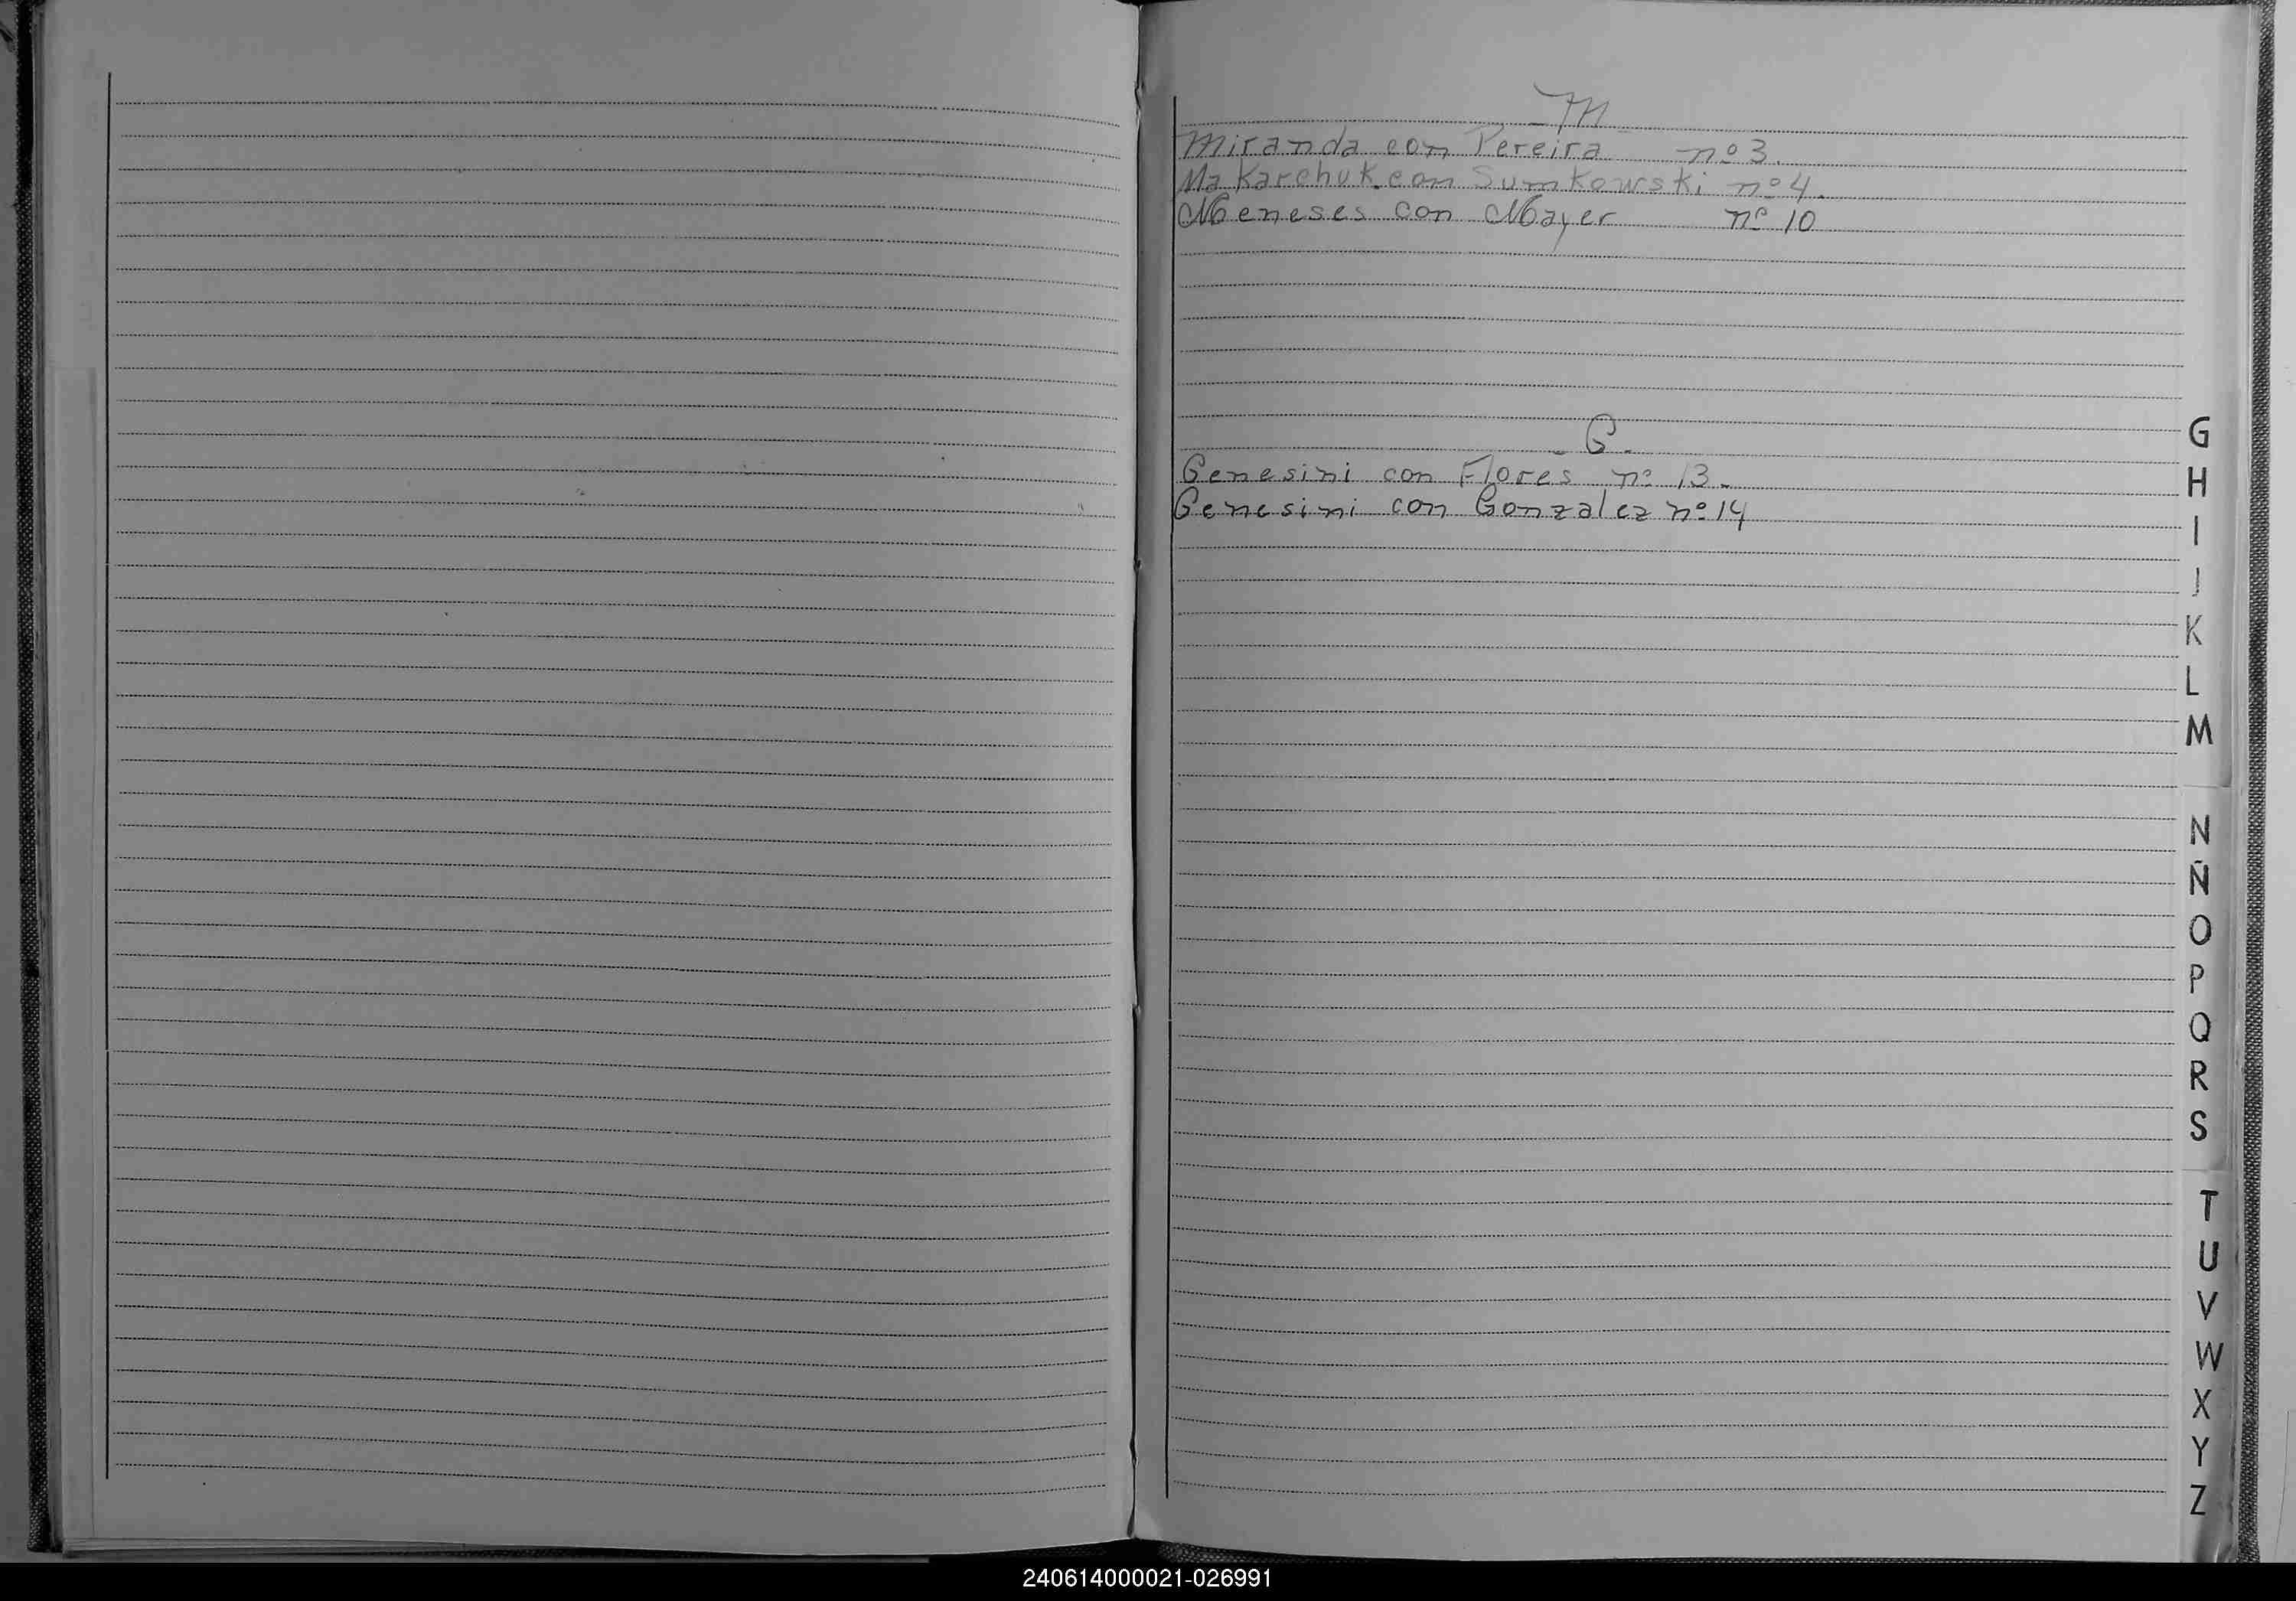 M
Miranda con Pereira nº 3.
Makarchuk con Sumkowski nº 4.
Meneses con Mayer nº 10
- G. -
Genesini con Flores nº 13.
Genesini con Gonzalez nº 14
G
H
I
J
K
L
M
N
Ñ
O
P
Q
R
S
T
U
V
W
X
Y
Z
240614000021-026991